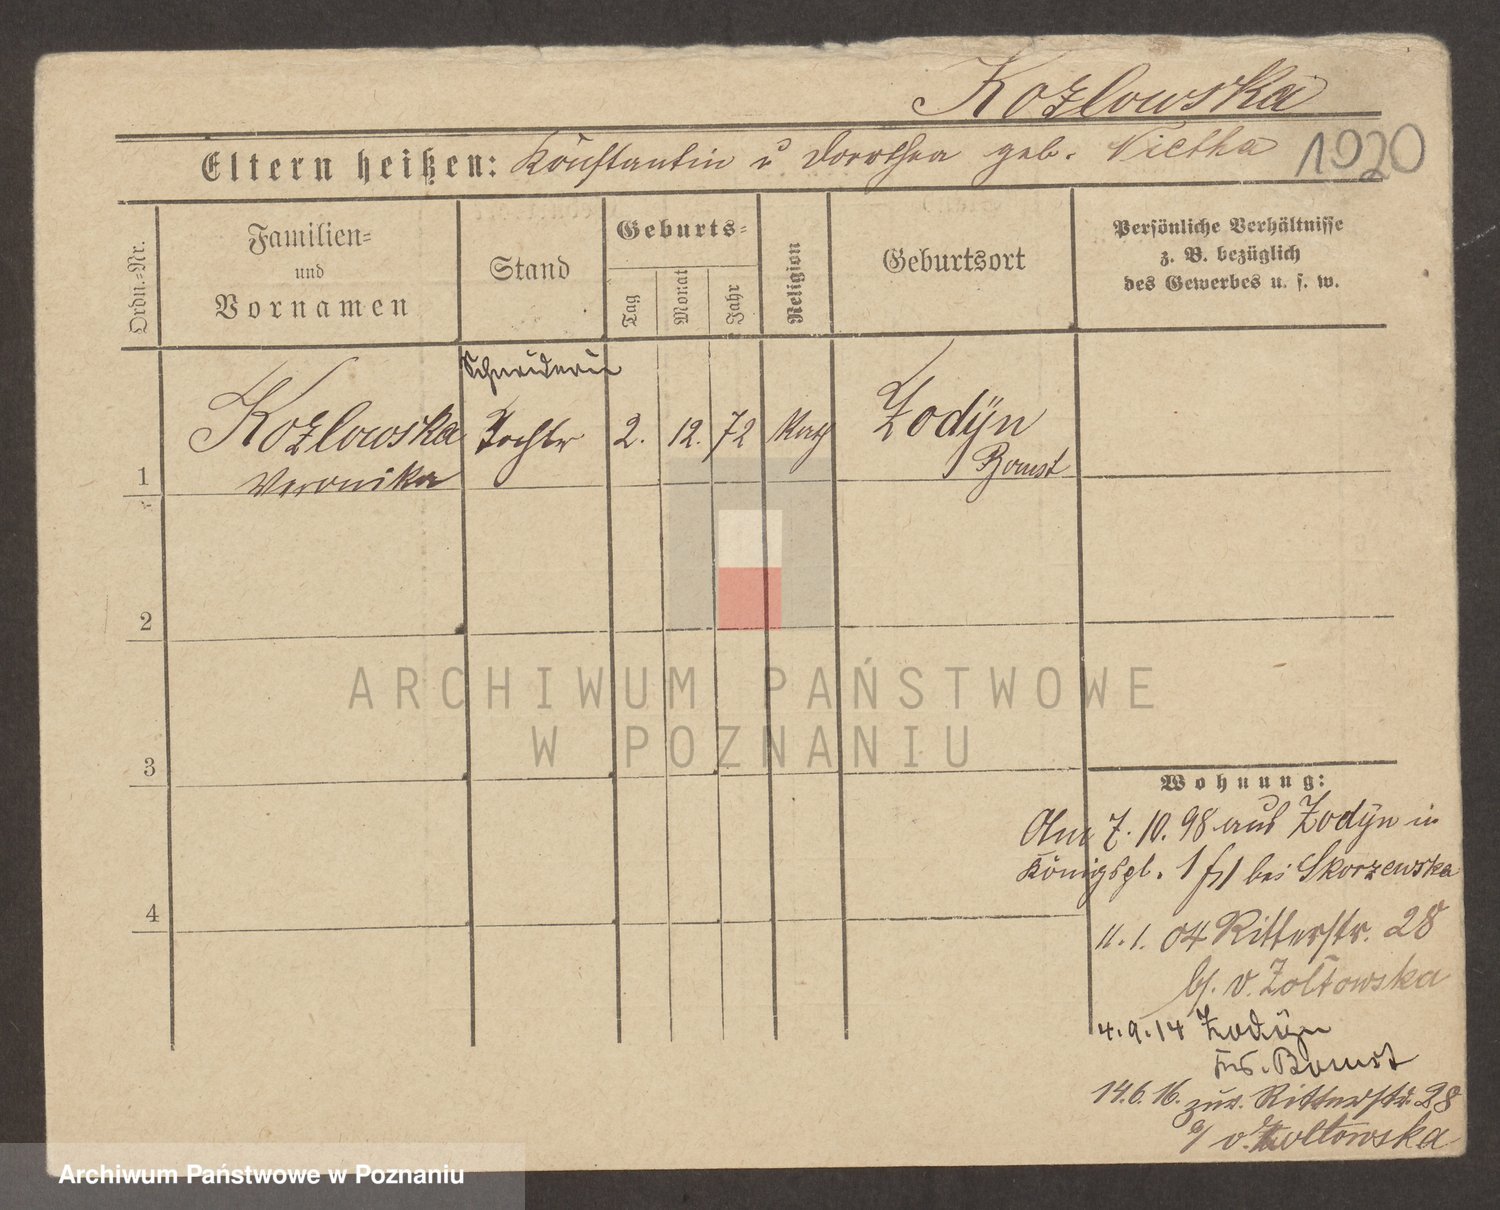 Kozlowska
Eltern heißen: Konstantin u Dorothea geb. Nietha
1920
Ordn.-Nr.
Familien-
und
Vornamen
Stand
Geburts-
Tag
Monat
Jahr
Religion
Geburtsort
Persönliche Verhältnisse
z. B. bezüglich
des Gewerbes u. s. w.
Schneiderin
Kozlowska Tochter 2. 12. 72 Kath Zodÿn
1 Veronika Bomst
2
3
4
ARCHIWUM PAŃSTWOWE
W POZNANIU
Wohnung:
7. 10. 98 aus Zodÿn in
Königspl. 1 bei Skorzewska
11. 1. 04 Ritterstr. 28
b/. v. Zoltowska
4. 9. 14 Zodÿn
Krs. Bomst
14. 6. 16. zur. Ritterstr. 28
v. Zoltowska
Archiwum Państwowe w Poznaniu